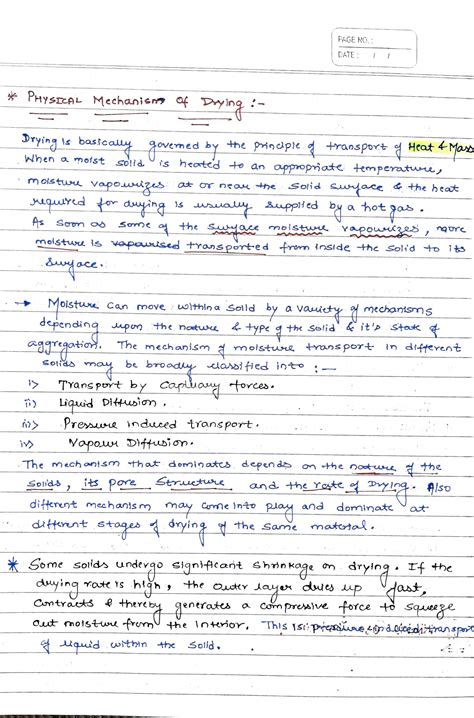 PAGE NO. :
DATE : / /
* PHYSICAL Mechanism Of Drying :-
Drying is basically governed by the principle of transport of Heat & Mass
When a moist solid is heated to an appropriate temperature,
moisture vapourizes at or near the solid surface & the heat
required for drying is usually supplied by a hot gas.
As soon as some of the surface moisture vapourizes, more
moisture is vapourised transported from inside the solid to its
surface.
→ Moisture can move within a solid by a variety of mechanisms
depending upon the nature & type of the solid & it's state of
aggregation. The mechanism of moisture transport in different
solids may be broadly classified into :—
i> Transport by Capillary forces.
ii) Liquid Diffusion.
iii> Pressure induced transport.
iv> Vapour Diffusion.
The mechanism that dominates depends on the nature of the
solids, its pore Structure and the rate of Drying. Also
different mechanism may come into play and dominate at
different stages of drying of the same material.
* Some solids undergo significant shrinkage on drying. If the
drying rate is high, the outer layer dries up fast,
contracts & thereby generates a compressive force to squeeze
out moisture from the interior. This is pressure induced transport
of liquid within the solid.